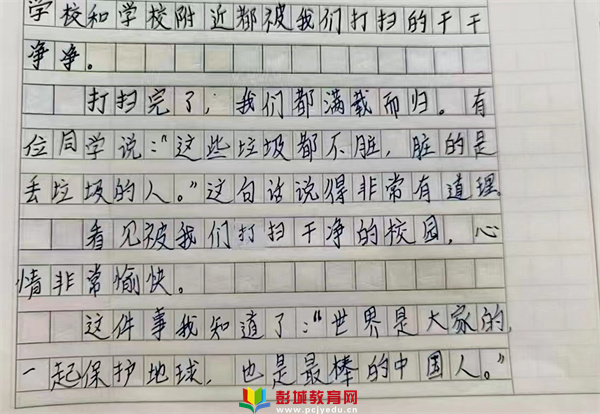 学校和学校附近都被我们打扫的干干
净净。
打扫完了，我们都满载而归。有
位同学说：“这些垃圾都不脏，脏的是
丢垃圾的人。”这句话说得非常有道理。
看见被我们打扫干净的校园，心
情非常愉快。
这件事我知道了：“世界是大家的，
一起保护地球，也是最棒的中国人。”
彭城教育网
www.pcjyedu.cn